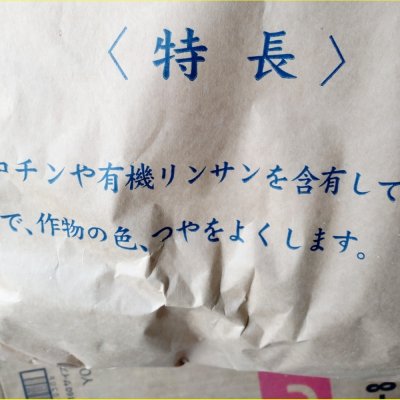 〈特長〉
ロチンや有機リンサンを含有して
で、作物の色、つやをよくします。